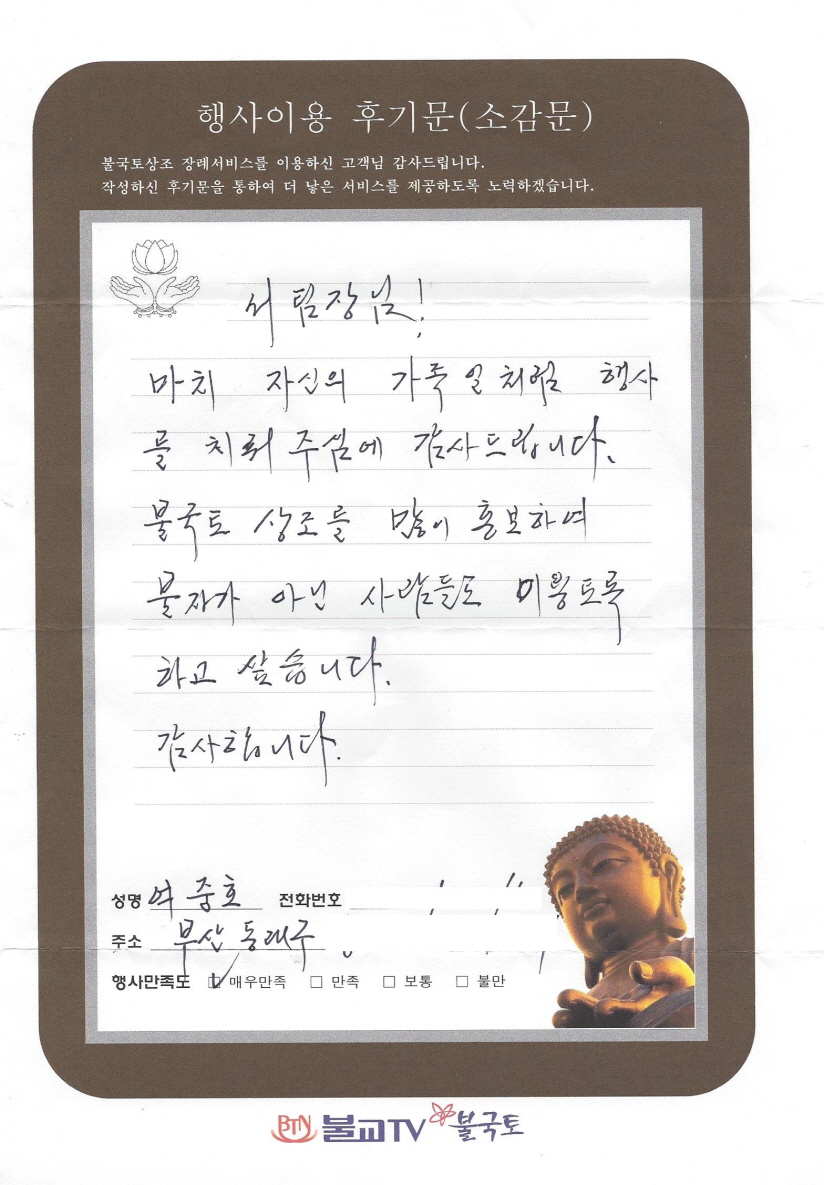 행사이용 후기문(소감문)
불국토상조 장례서비스를 이용하신 고객님 감사드립니다.
작성하신 후기문을 통하여 더 낳은 서비스를 제공하도록 노력하겠습니다.
서 팀장님!
마치 자신의 가족 일처럼 행사
를 치뤄 주심에 감사드립니다.
불국토 상조를 많이 홍보하여
불자가 아닌 사람들도 이용토록
하고 싶습니다.
감사합니다.
성명 여중호 전화번호
주소 부산 동래구
행사만족도 매우만족 만족 보통 불만
BTN 불교TV 불국토